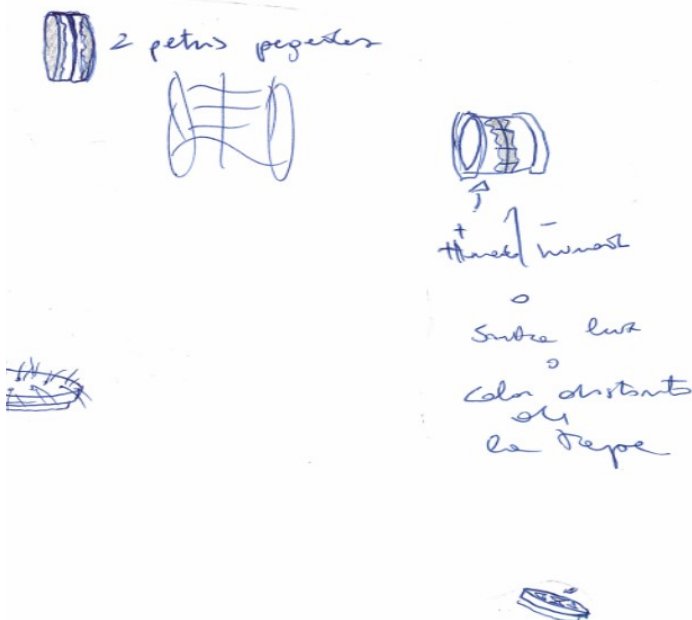 2 petris pegados
+ Humedad / - humedad
o
Sombra luz
o
color distinto
de
la Tapa